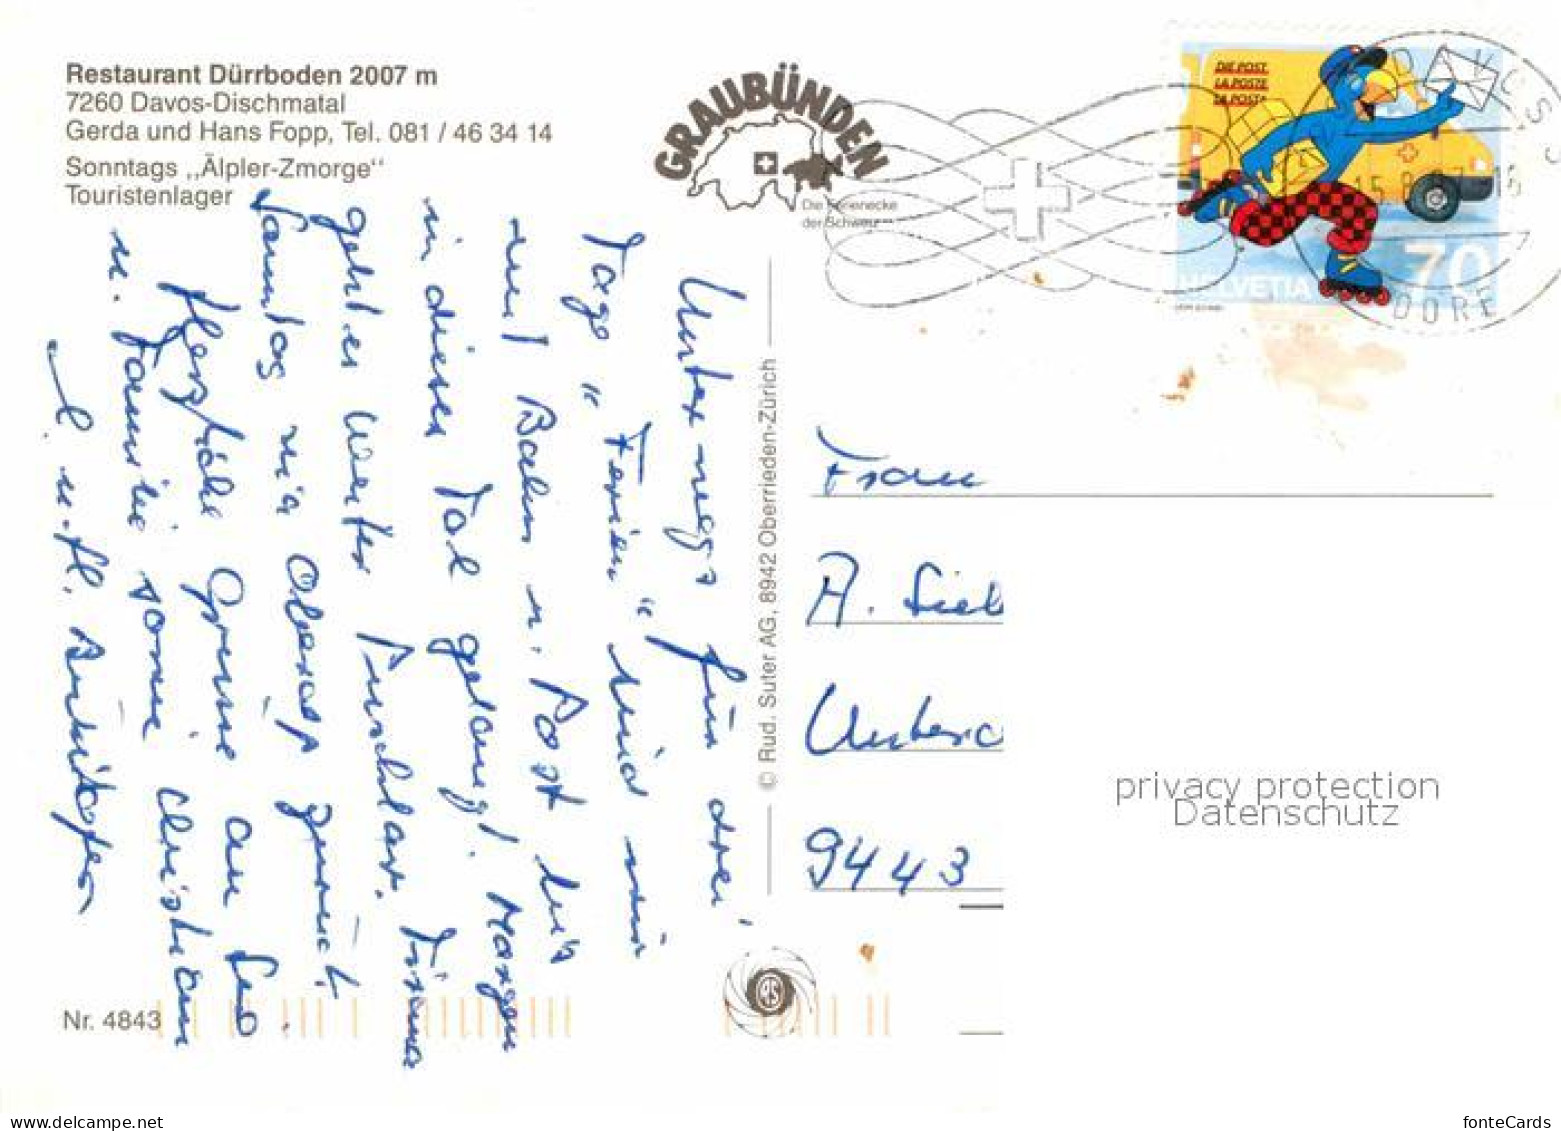 Restaurant Dürrboden 2007 m
7260 Davos-Dischmatal
Gerda und Hans Fopp, Tel. 081 / 46 34 14
Sonntags ,,Älpler-Zmorge"
Touristenlager
GRAUBÜNDEN
Die Ferienecke
der Schweiz
DIE POST
LA POSTE
LA POSTA
HELVETIA
70
DAVOS
DORF
Unterwegs für drei
Tage "Ferien" sind wir
mit Bahn u. Post bis
in dieses Tal gelangt. Morgen
geht es weiter
Samstag via zurück!
Herzliche Grüsse an Leo
u. Familie sowie Christian
© Rud. Suter AG, 8942 Oberrieden-Zürich
Frau
A. Sieb
9443
Nr. 4843
privacy protection
Datenschutz
fonteCards
www.delcampe.net